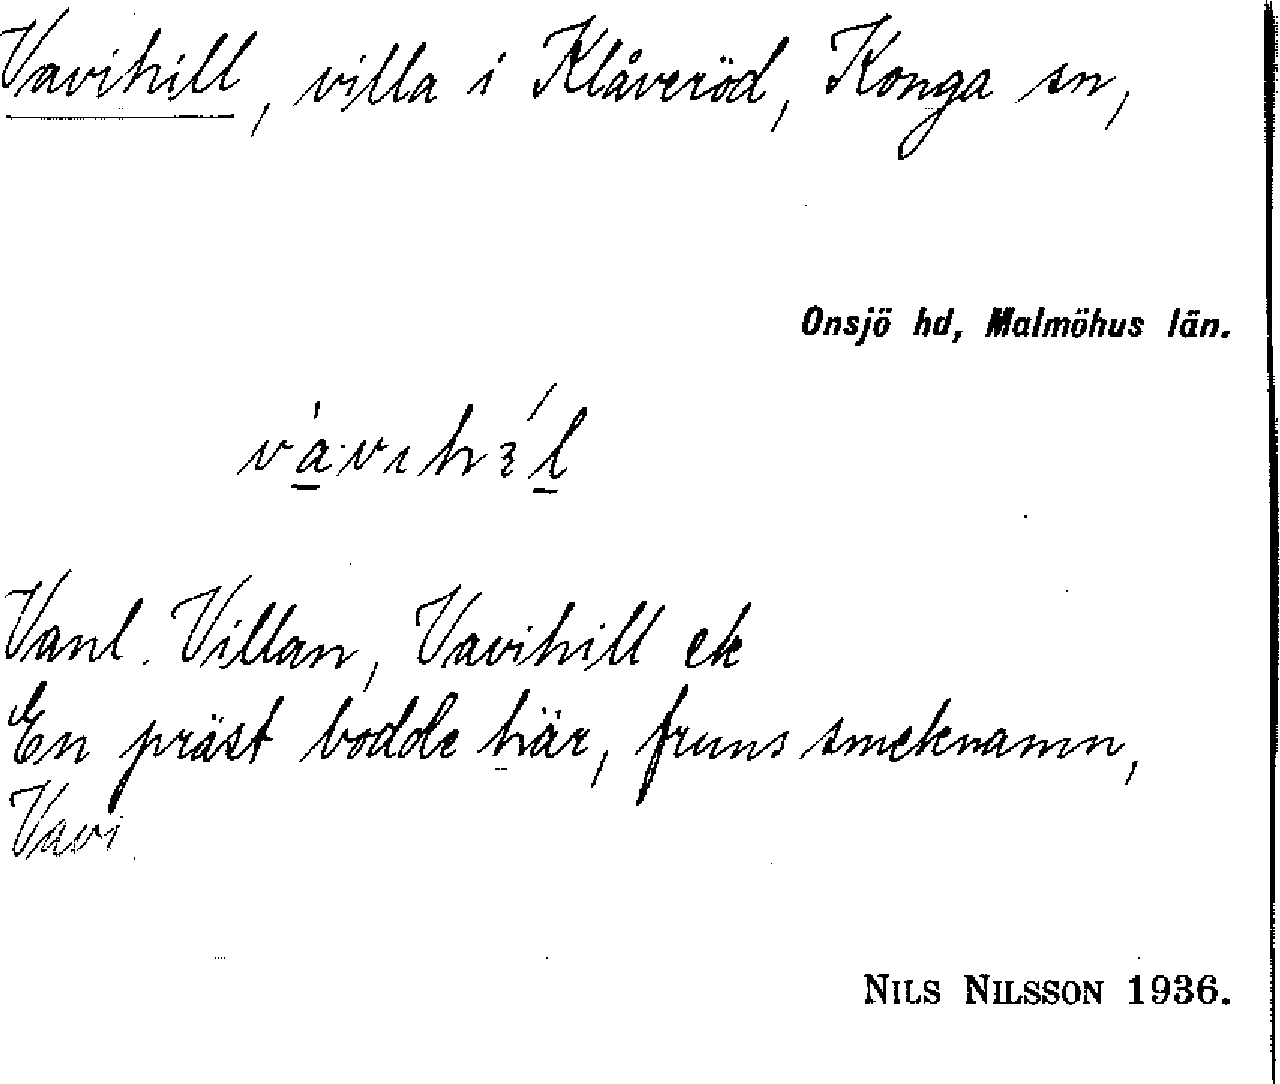 Vavihill, villa i Klåveröd, Konga sn,
Onsjö hd, Malmöhus län.
Vanl. Villan, Vavihill ek
En präst bodde här, fruns smeknamn,
Vavi
NILS NILSSON 1936.